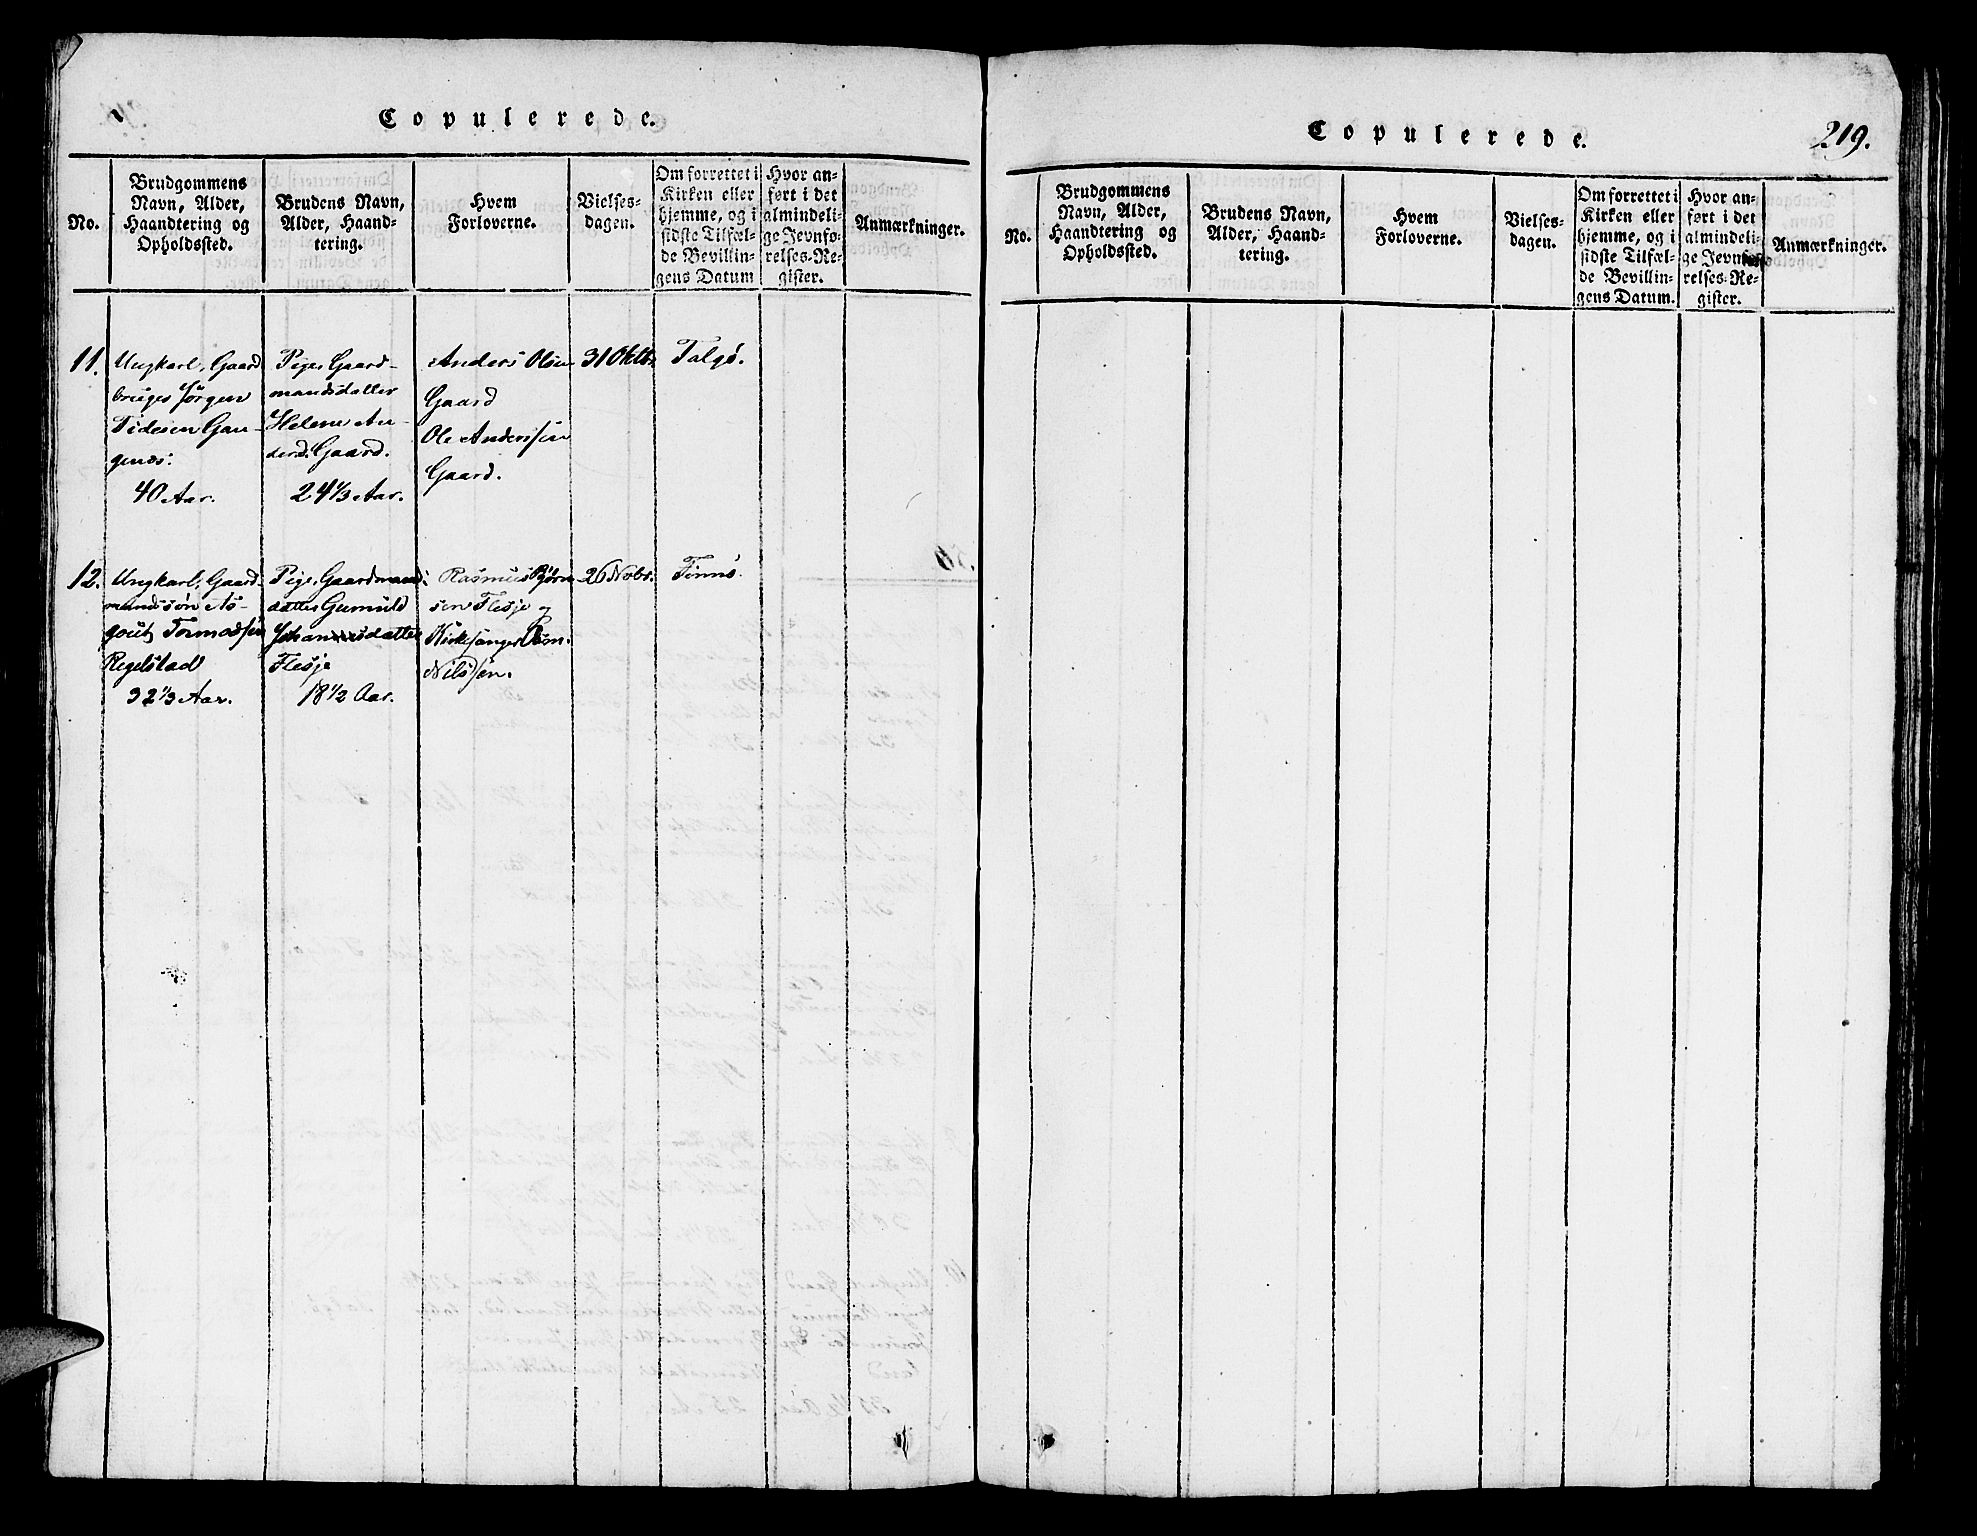 Copulerede.
No.
Brudgommens
Navn, Alder,
Haandtering og
Opholdssted.
Brudens Navn,
Alder, Haand-
tering.
Hvem
Forloverne.
Vielses-
dagen.
Om forrettet i
Kirken eller
hjemme, og i
sidste Tilfæl-
de Bevillin-
gens Datum
Hvor an-
ført i det
almindeli-
ge Jevnfø-
relses-Re-
gister.
Anmærkninger.
11.
Ungkarl, Gaard
bruger Jörgen
Tidesen Gan-
genæs.
40 Aar.
Pige, Gaard-
mandsdatter
Helene An-
dersd. Gaard.
24 1/3 Aar.
Anders Olsen
Gaard
Ole Anderssen
Gaard.
31 Oktbr.
Talgö.
12.
Ungkarl, Gaard-
mandssön As-
gout Tormodsen
Regelstad
32 1/3 Aar.
Pige, Gaardmands
datter Gunuld
Johannesdatter
Flesje
18 1/2 Aar.
Rasmus Björn
sen Flesje og
Kirkesanger
Nilssen.
26 Novbr.
Finnö.
Copulerede.
219.
No.
Brudgommens
Navn, Alder,
Haandtering og
Opholdssted.
Brudens Navn,
Alder, Haand-
tering.
Hvem
Forloverne.
Vielses-
dagen.
Om forrettet i
Kirken eller
hjemme, og i
sidste Tilfæl-
de Bevillin-
gens Datum.
Hvor an-
ført i det
almindeli-
ge Jevnfø-
relses-Re-
gister.
Anmærkninger.